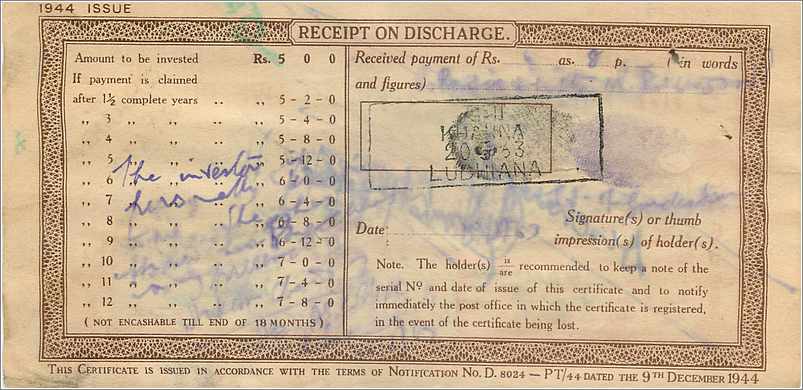 1944 ISSUE
RECEIPT ON DISCHARGE.
Amount to be invested Rs. 5 0 0
If payment is claimed
after 1½ complete years .. ,, 5 - 2 - 0
,, 3 ,, ,, .. ,, 5 - 4 - 0
,, 4 ,, ,, .. ,, 5 - 8 - 0
,, 5 ,, ,, .. ,, 5 - 12 - 0
,, 6 ,, ,, .. ,, 6 - 0 - 0
,, 7 ,, ,, .. ,, 6 - 4 - 0
,, 8 ,, ,, .. ,, 6 - 8 - 0
,, 9 ,, ,, .. ,, 6 - 12 - 0
,, 10 ,, ,, .. ,, 7 - 0 - 0
,, 11 ,, ,, .. ,, 7 - 4 - 0
,, 12 ,, ,, .. ,, 7 - 8 - 0
( NOT ENCASHABLE TILL END OF 18 MONTHS )
The investor
Received payment of Rs. as. 8 p. (in words
and figures)
KHANNA
LUDHIANA
Signature(s) or thumb
Date
impression(s) of holder(s).
Note. The holder(s) is/are recommended to keep a note of the
serial Nº and date of issue of this certificate and to notify
immediately the post office in which the certificate is registered,
in the event of the certificate being lost.
THIS CERTIFICATE IS ISSUED IN ACCORDANCE WITH THE TERMS OF NOTIFICATION NO. D. 8024 — PT/44 DATED THE 9TH DECEMBER 1944